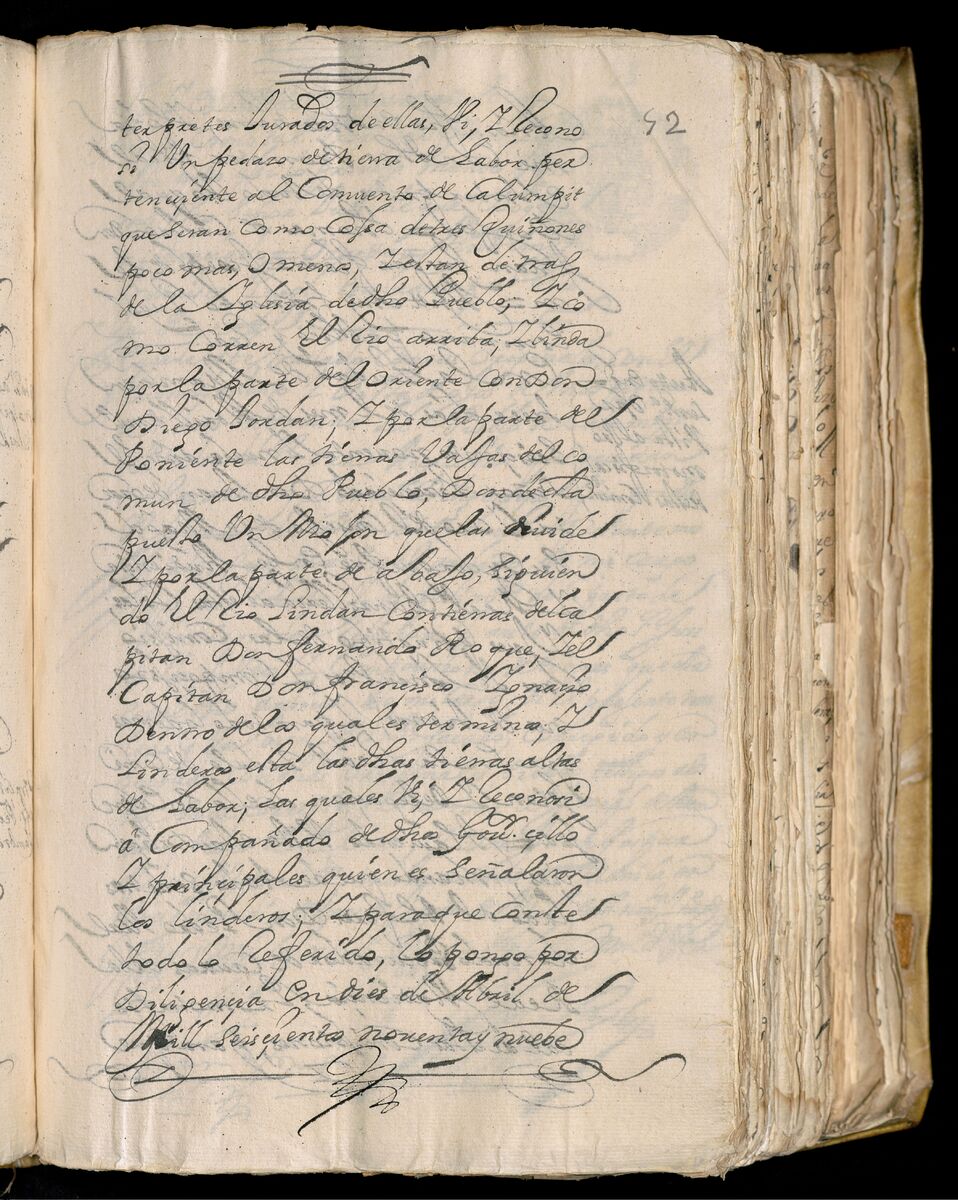 52
terpretes Jurados de ellas, Vi, Y Recono
si Un pedazo de tierra de Labor per
teneçiente al Comvento de Calumpit
que seran como Cossa de tres Quiñones
poco mas, O menos, Y estan detras
de la Yglesia de dho Pueblo; Y co
mo Corren El Rio arriba, Y linda
por la parte del Oriente con Don
Diego Jordan; Y por la parte del
Poniente las tierras Vajas del co
mun de dho Pueblo, Donde esta
puesto Un Mojon que las divide
Y por la parte de abajo, siguien
do El Rio Lindan con tierras del ca
pitan Don fernando Roque, Y el
Capitan Don françisco
Dentro de los quales terminos, Y
Linderos esta las dhas tierras altas
de Labor; Las quales Vi, Y Reconosi
â Compañado de dho Gov.cillo
Y prinçipales quienes señalaron
los linderos; Y para que Conste
todo lo Referido, lo pongo por
Diligençia en dies de Abril de
Mill seisçientos noventa y nuebe